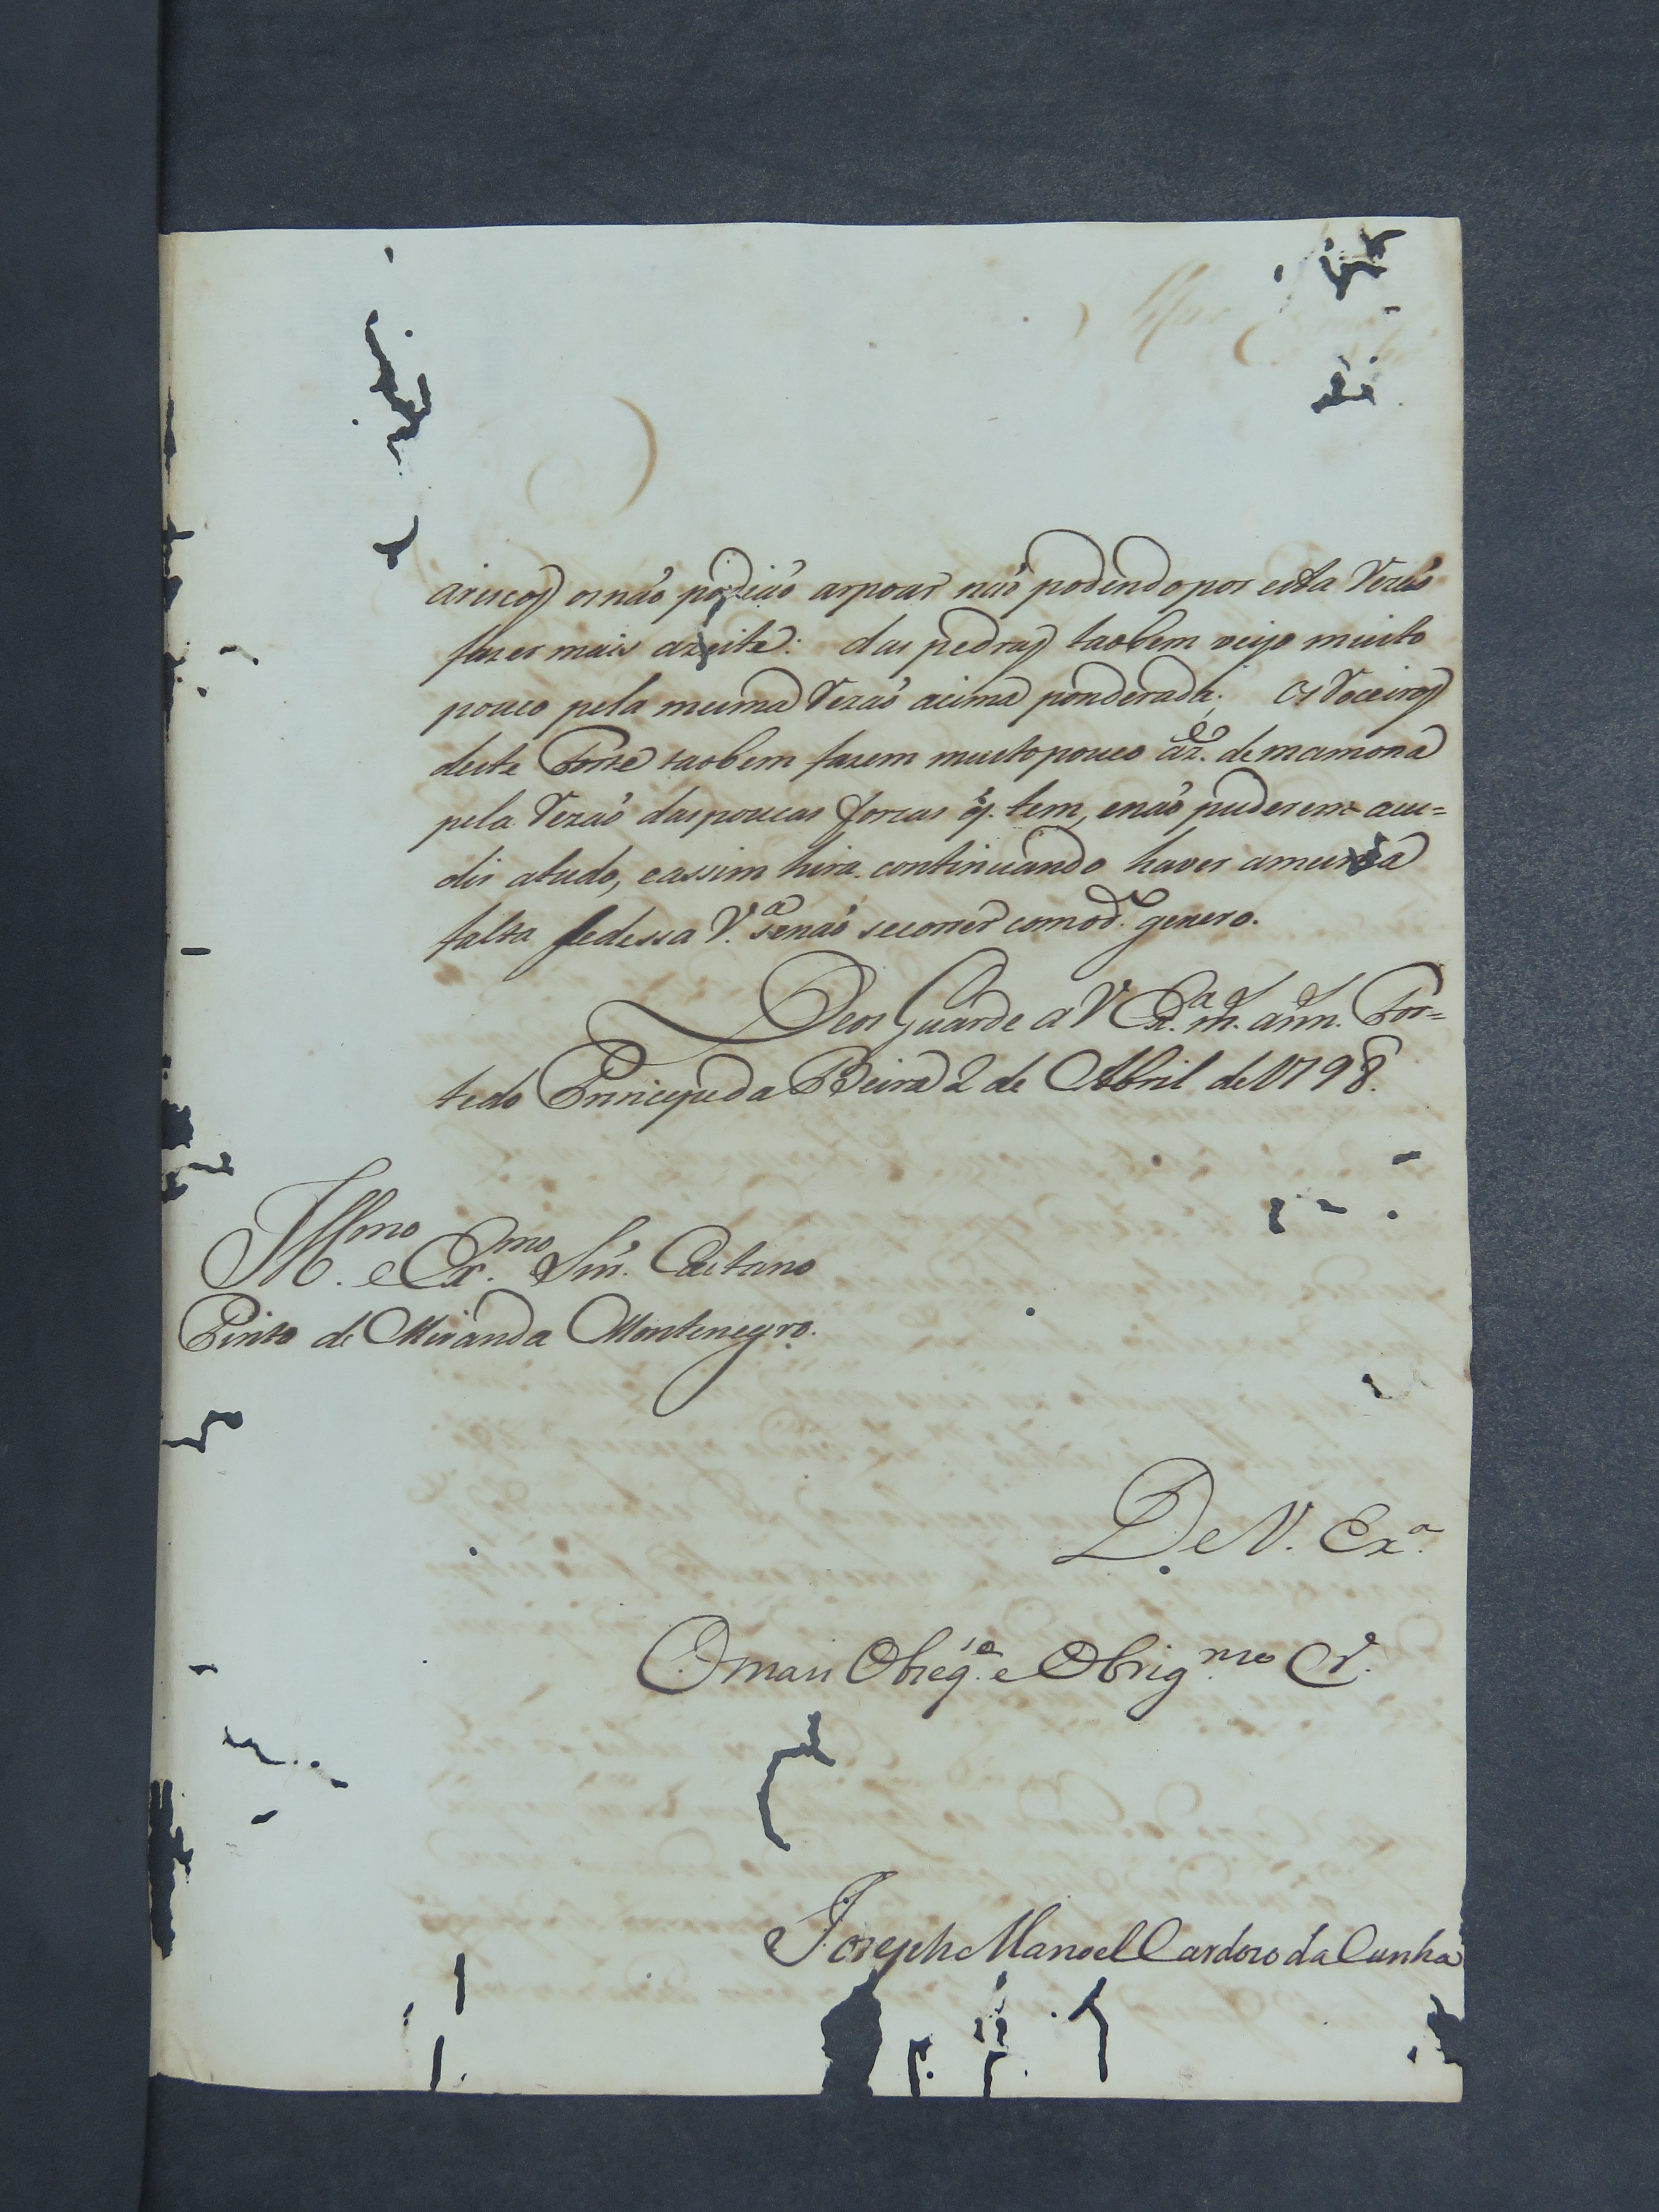 ariscos os não podião arpoar não podendo por esta Rezaõ
fazer mais azeite: das pedras taobem veijo muito
pouco pela mesma Rezaõ acima ponderada; os Roceiros
deste Forte taobem fazem muito pouco az.e de mamona
pela Rezaõ das poucas forcas q̃. tem, e não puderem acu=
dir atudo, e assim hira continuando haver a mesma
falta se dessa V.a se naõ secorrer com od.o genero.
Deos Guarde a V Ex.a m.s ann.s For=
te do Principe da Beira 2 de Abril de 1798.
Illmo. e Exmo. Snr. Caetano
Pinto de Miranda Montenegro.
De V. Ex.a
O mais Obeq.e e Obrig.mo Cr.
Joseph Manoel Cardozo da Cunha